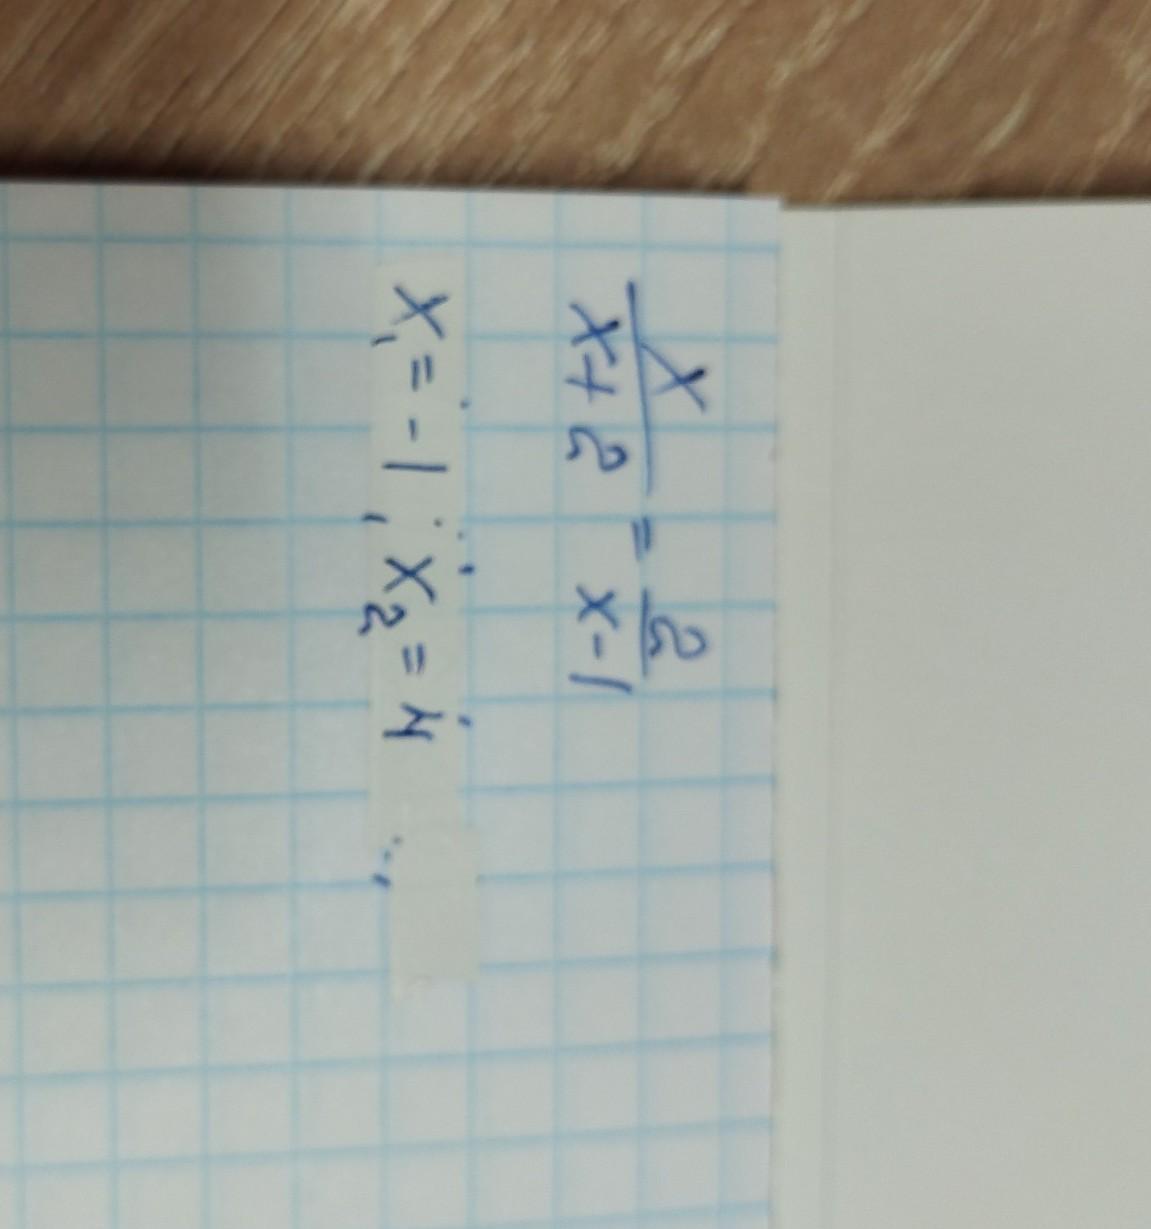 x/(x+2) = 2/(x-1)
x₁ = -1; x₂ = 4